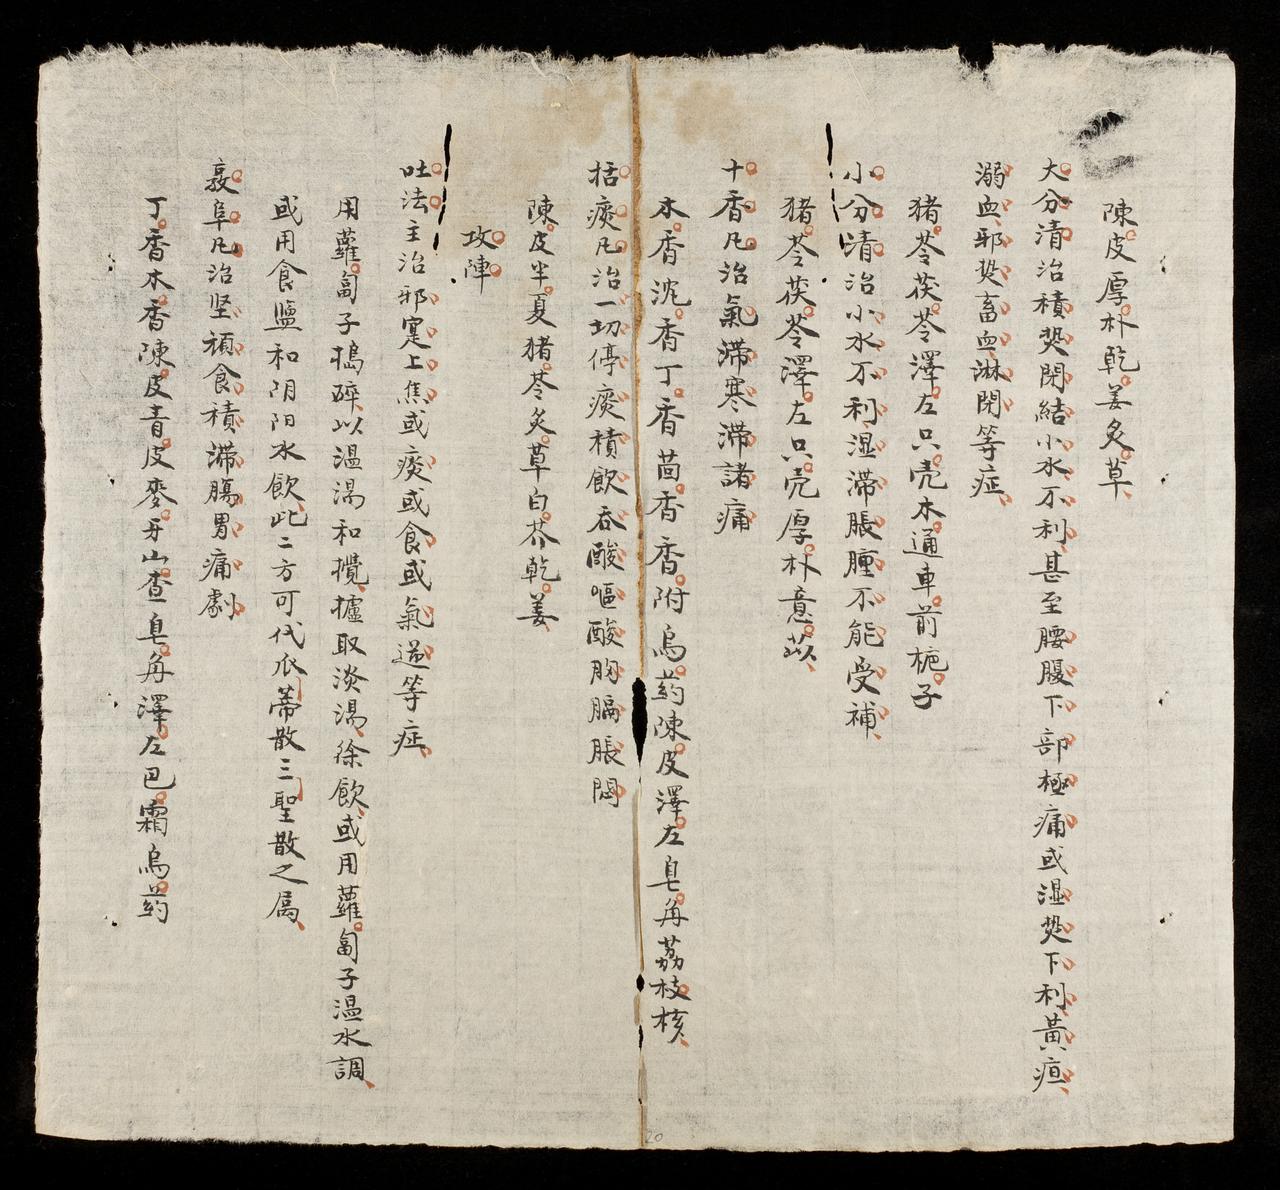 陳皮厚朴乾姜炙草
大分清治積𤍠閉結小水不利甚至腰腹下部極痛或湿𤍠下利黃疸
溺血邪𤍠畜血淋閉等症
猪苓茯苓澤左只壳木通車前梔子
小分清治小水不利湿滯脹腫不能受補
猪苓茯苓澤左只壳厚朴意苡
十香凡治氣滯寒滯諸痛
木香沈香丁香茴香香附烏药陳皮澤左皂角荔枝核
括痰凡治一切停痰積飲吞酸嘔酸胸膈脹悶
陳皮半夏猪苓炙草白芥乾姜
攻陣
吐法主治邪寔上焦或痰或食或氣逆等症
用蘿匐子搗碎以温湯和攪攎取淡湯徐飲或用蘿匐子温水調
或用食盬和阴阳水飲此二方可代瓜蒂散三聖散之属
阜凡治坚頑食積滯腸胃痛劇
丁香木香陳皮青皮麥牙山查皂角澤左巴霜烏药
20